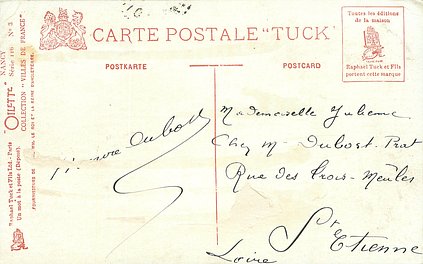 CARTE POSTALE "TUCK"
POSTKARTE
POSTCARD
Toutes les éditions
de la maison
Raphael Tuck et Fils
portent cette marque
NANCY Série 116 Nº 3
"OILETTE" COLLECTION "VILLES DE FRANCE"
Raphael Tuck et Fils Ltd - Paris
Un mot à la poste (Déposé)
FOURNISSEURS DE LL. MM. LE ROI ET LA REINE D'ANGLETERRE
Dubost
Mademoiselle Julienne
Chez M. Dubost-Prat
Rue des Trois-Meules
St Etienne
Loire